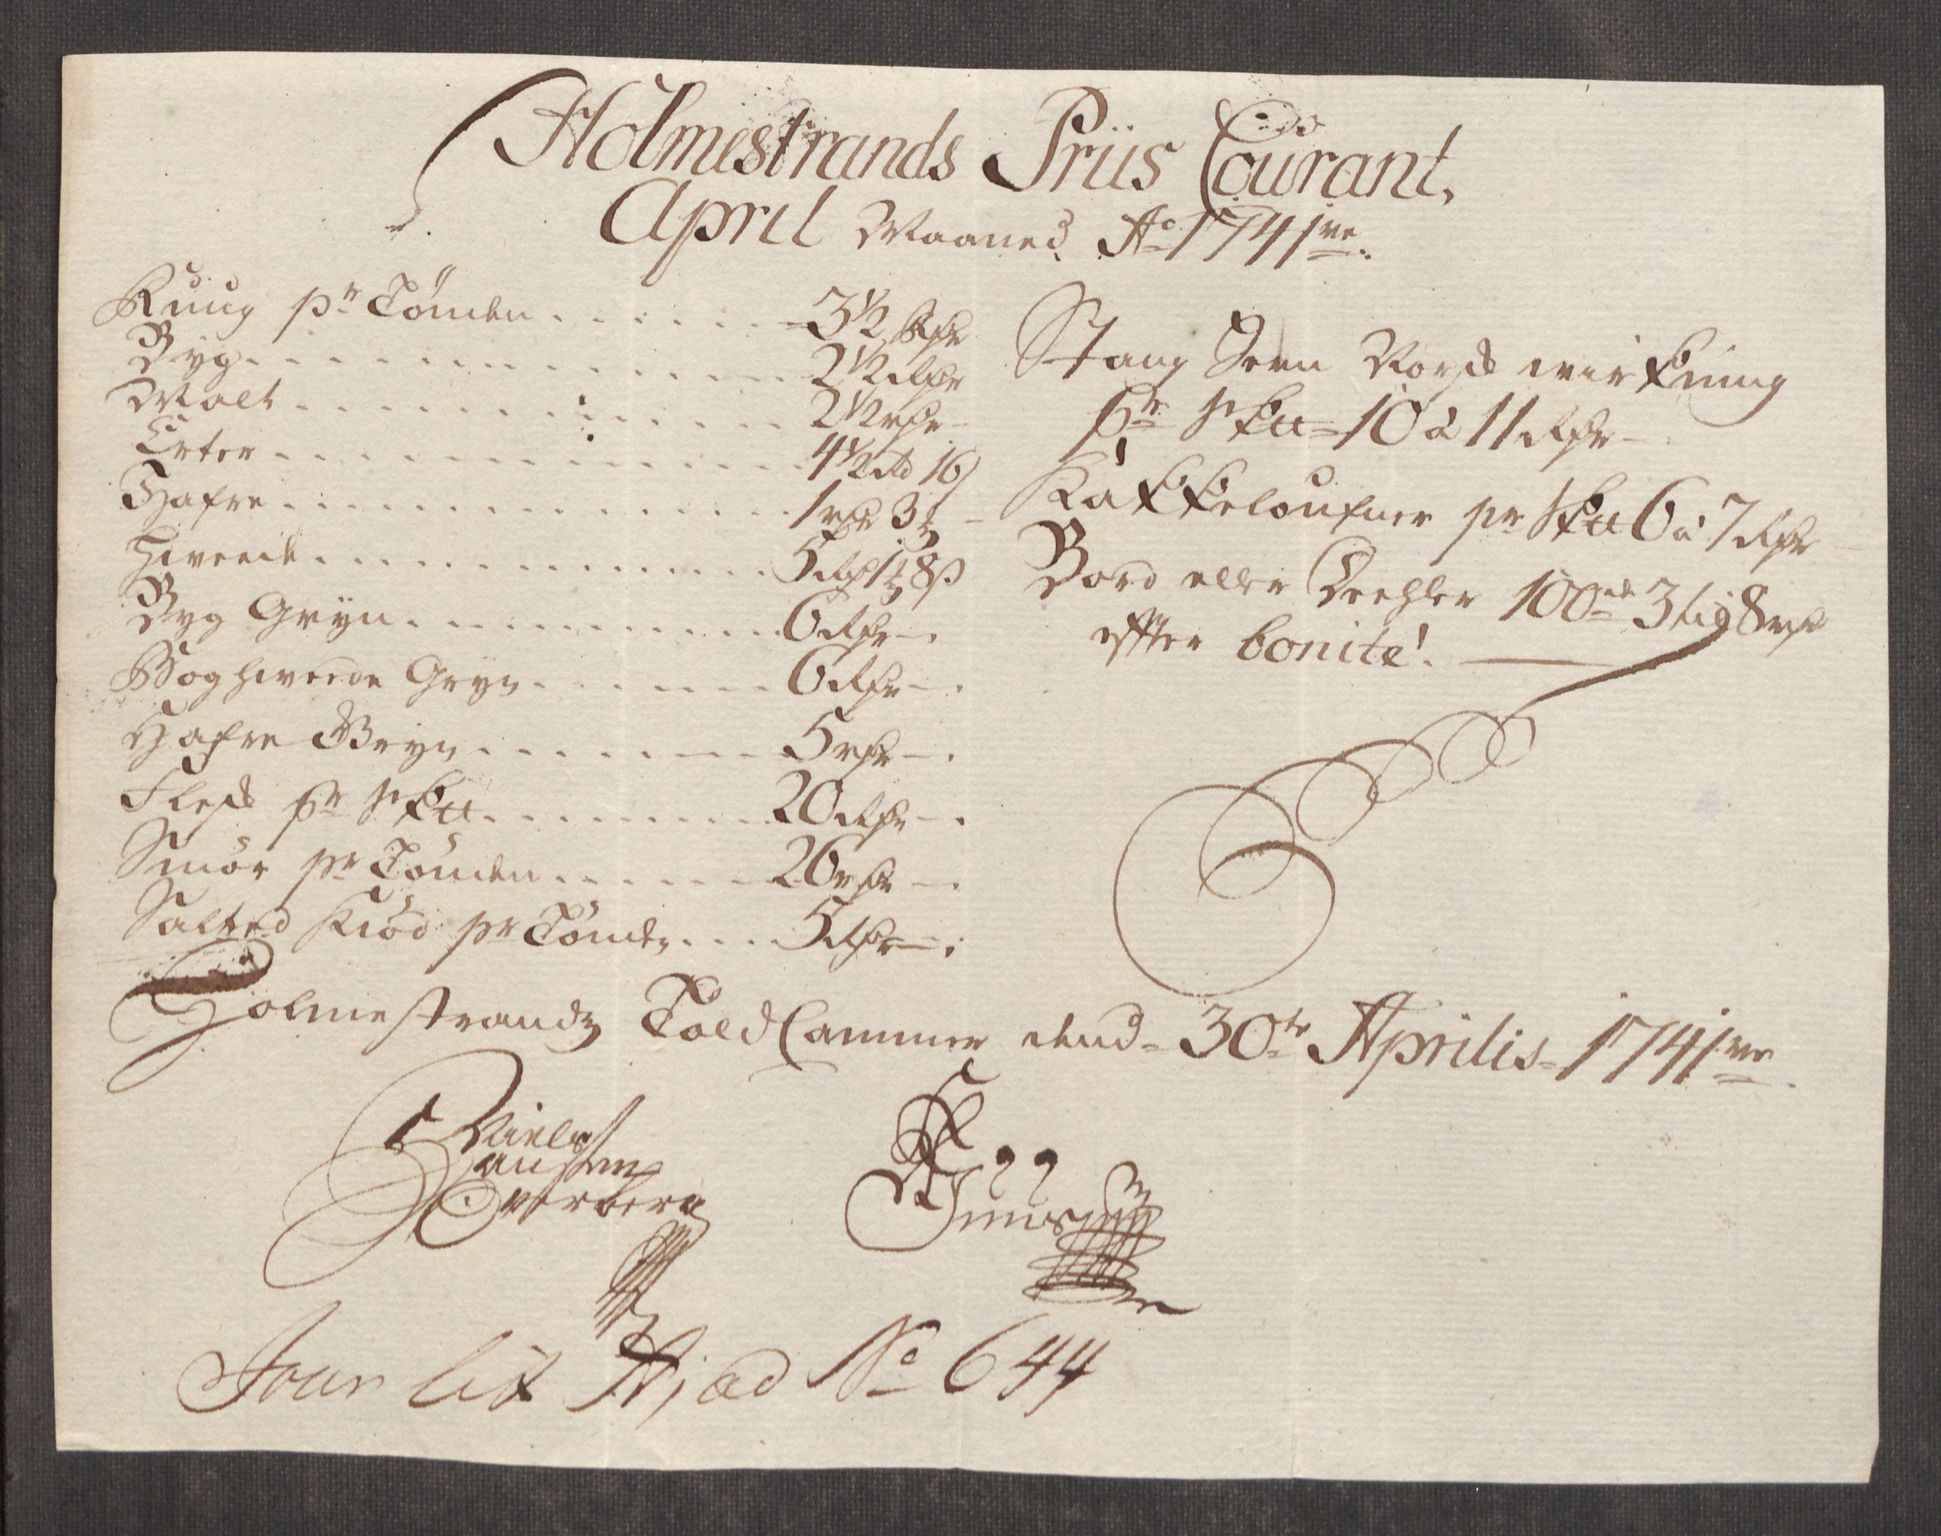 Holmestrands Priis Courant,
April Maaned Ao 1741ve.
Ruug pr Tönden . . . . . . 3½ Rdr
Byg . . . . . . 2½ Rdr
Malt . . . . . . 2½ rdr
Erter . . . . . . 4½ Rd 16ß
Hafre . . . . . . 1 rdr 3
Hvede . . . . . . 5 Rd 1 8ß
Byg Gryn . . . . . . 6 Rdr
Boghvede Gryn . . . . . . 6 Rdr
Hafre Gryn . . . . . . 5 rdr
Flesk pr skpd . . . . . . 20 Rdr
Smör pr Tönden . . . . . . 26 rdr
Salted Kiöd pr Tönden . . . . 5 Rdr
Stang Jern Norsk virkning
pr skpd 10 à 11 Rdr
Kakkeloufner pr skpd 6 à 7 Rdr
Bord eller Deehler 100de 3 til 8 rdr
effter bonité.
Holmestrands Told Cammer dend 30te Aprilis 1741ve.
Niels
Hansen
Overberg
Jour lit A; ad No 644